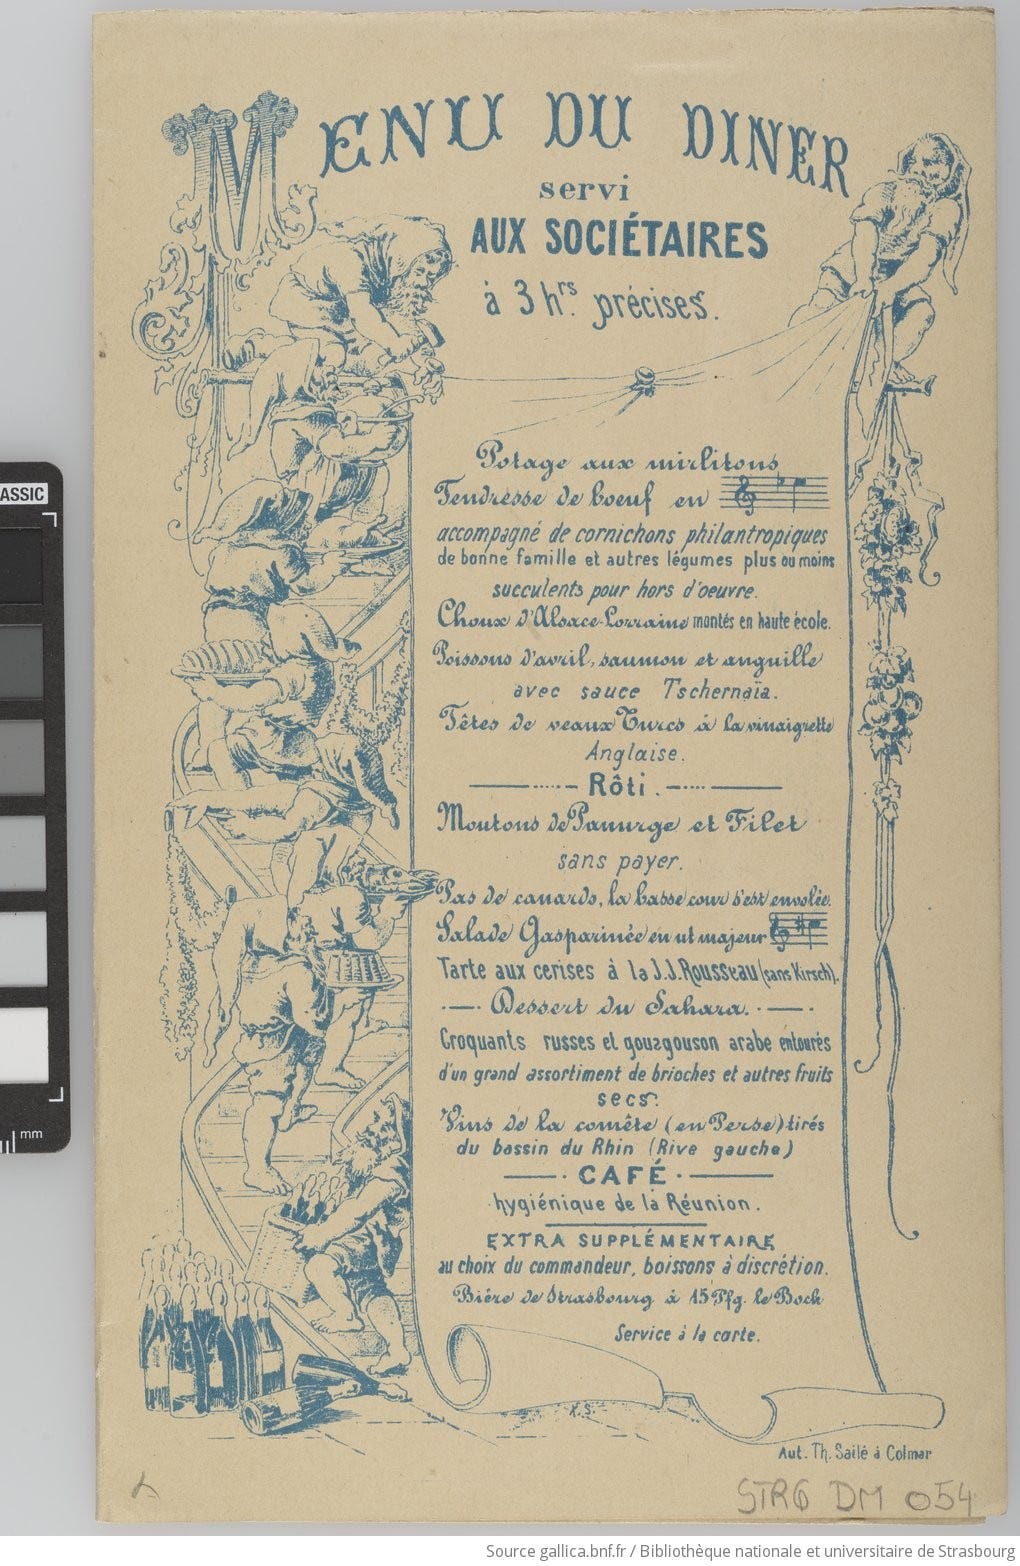 MENU DU DINER
servi
AUX SOCIÉTAIRES
à 3 hrs. précises.
Potage aux mirlitons
Tendresse de boeuf en
accompagné de cornichons philantropiques
de bonne famille et autres légumes plus ou moins
succulents pour hors d'oeuvre.
Choux d'Alsace-Lorraine montés en haute école.
Poissons d'avril, saumon et anguille
avec sauce Tschernaïa.
Têtes de veaux Turcs à la vinaigrette
Anglaise.
Rôti.
Moutons de Panurge et Filet
sans payer.
Pas de canards, la basse cour s'est envolée.
Salade Gasparinée en ut majeur
Tarte aux cerises à la J.J. Rousseau (sans Kirsch).
Dessert du Sahara.
Croquants russes et gouzgouson arabe entourés
d'un grand assortiment de brioches et autres fruits
secs.
Vins de la comête (en Perse) tirés
du bassin du Rhin (Rive gauche)
CAFÉ
hygiénique de la Réunion.
EXTRA SUPPLÉMENTAIRE
au choix du commandeur, boissons à discrétion.
Bière de Strasbourg à 15 Pfg. le Bock
Service à la carte.
X.S.
Aut. Th. Sailé à Colmar
STRG DM 054
ASSIC
mm
Source gallica.bnf.fr / Bibliothèque nationale et universitaire de Strasbourg